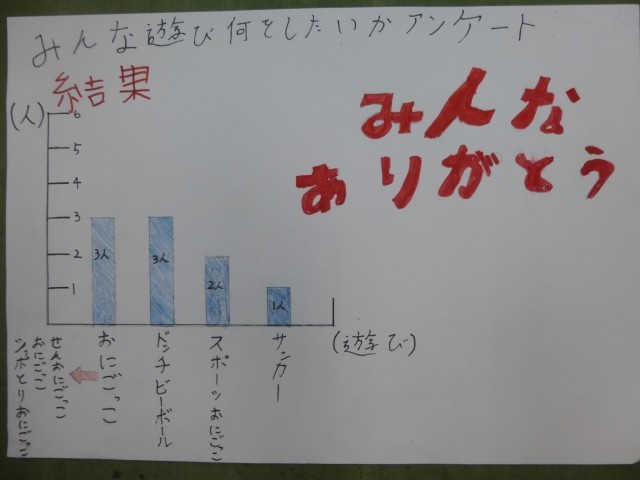 みんな遊び何をしたいかアンケート
結果
みんな
ありがとう
(人)
6
5
4
3
2
1
3人
3人
2人
1人
おにごっこ
ドッチビーボール
スポーツおにごっこ
サッカー
(遊び)
せんおにごっこ
おにごっこ
シッポとりおにごっこ